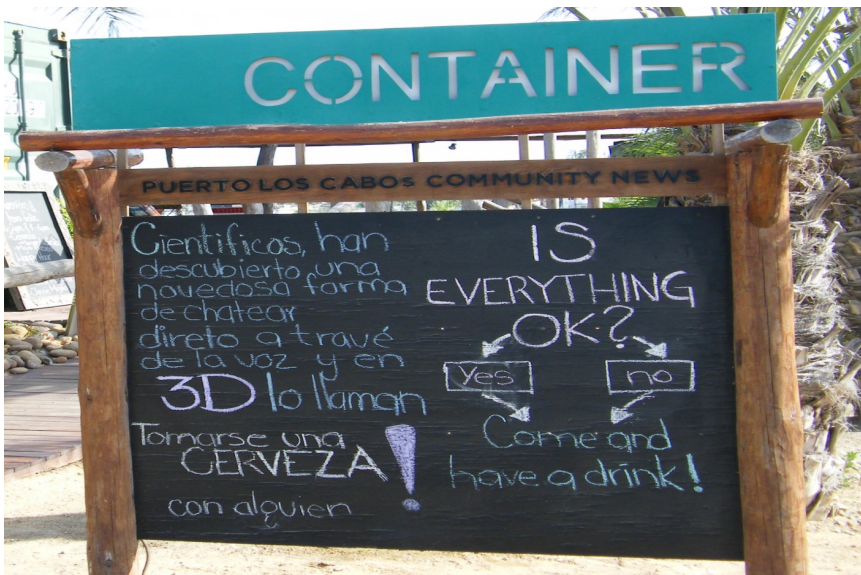 CONTAINER
PUERTO LOS CABOS COMMUNITY NEWS
Cientificos, han
descubierto una
novedosa forma
de chatear
direto a travé
de la voz y en
3D lo llaman
Tomarse una
CERVEZA!
con alguien
IS
EVERYTHING
OK?
Yes no
Come and
have a drink!